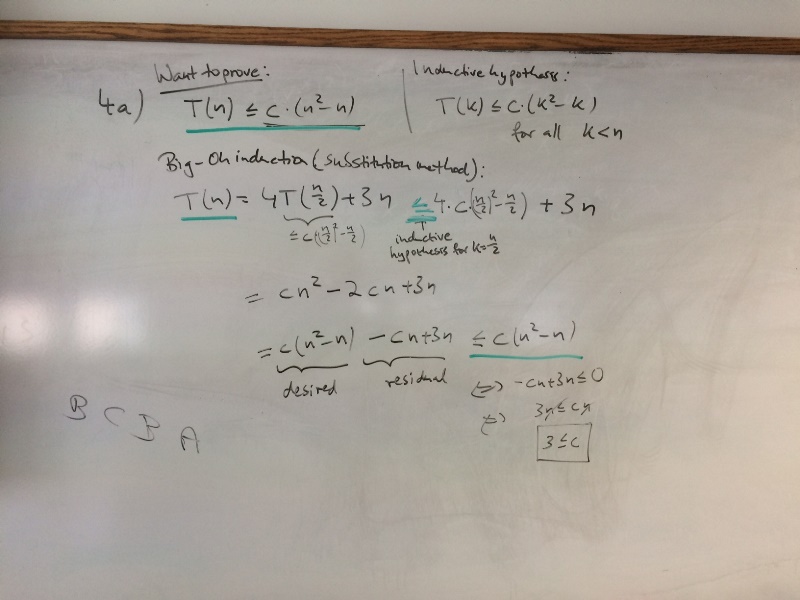 4a) Want to prove:
T(n) ≤ c·(n²-n)
Inductive hypothesis:
T(k) ≤ c·(k²-k)
for all k<n
Big-Oh induction (substitution method):
T(n) = 4T(n/2) + 3n ≤ 4·c·((n/2)² - n/2) + 3n
≤ c((n/2)² - n/2)
inductive
hypothesis for k=n/2
= cn² - 2cn + 3n
= c(n²-n) - cn+3n ≤ c(n²-n)
desired residual
⇔ -cn+3n ≤ 0
⇔ 3n ≤ cn
3 ≤ c
B C B A